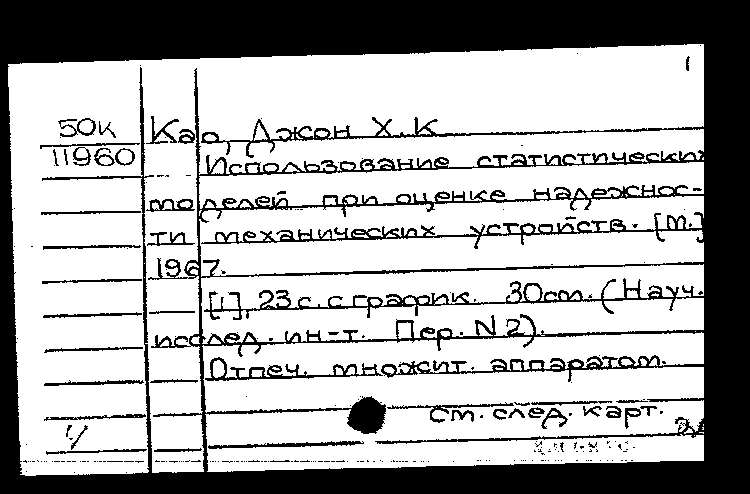 1
50к Као, Джон Х. К
11960 Использование статистических
моделей при оценке надежнос-
ти механических устройств. [М.]
1967.
[1], 23 с. с график. 30 см. (Науч.
исслед. ин-т. Пер. N 2).
Отпеч. множит. аппаратом.
см. след. карт.